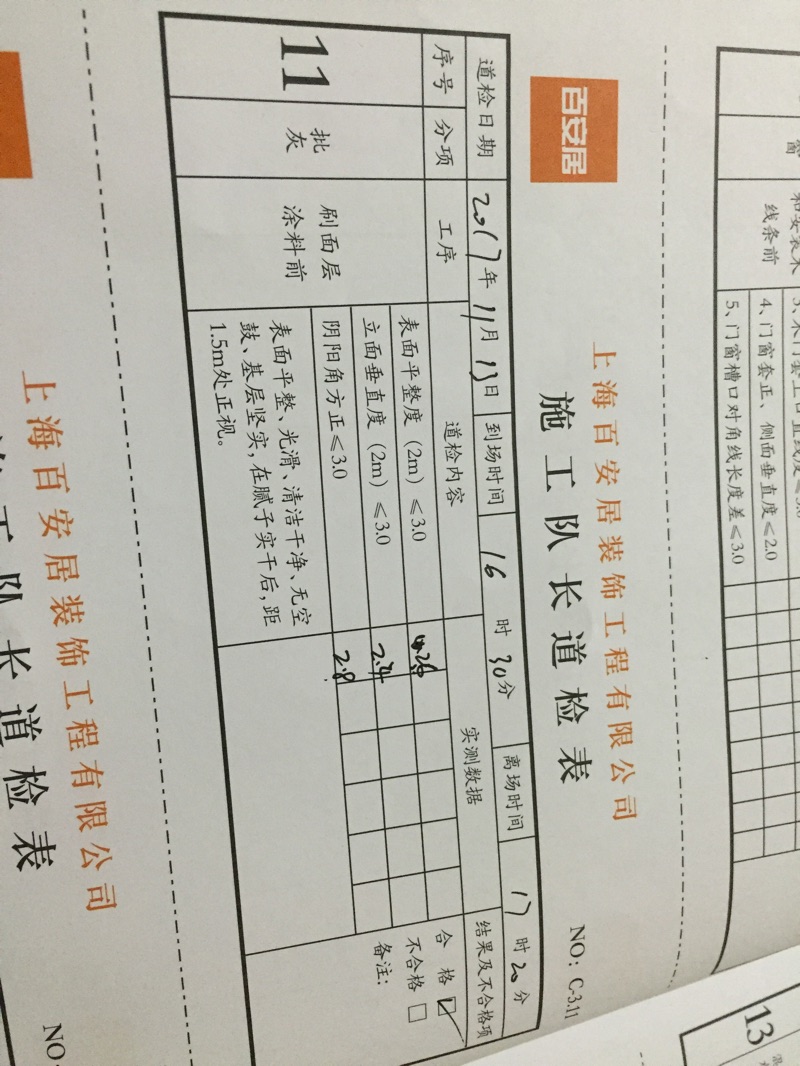 窗
线条前
4、门窗套正、侧面垂直度≤2.0
5、门窗槽口对角线长度差≤3.0
百安居
上海百安居装饰工程有限公司
施工队长道检表
NO：C-3.11
道检日期 2017年11月13日 到场时间 16时30分 离场时间 17时20分
序号 分项 工序 道检内容 实测数据 结果及不合格项
11 批灰 刷面层涂料前
表面平整度（2m）≤3.0 2.6
立面垂直度（2m）≤3.0 2.4
阴阳角方正≤3.0 2.8
表面平整、光滑、清洁干净、无空
鼓、基层坚实，在腻子实干后，距
1.5m处正视。
合格 ☑
不合格 □
备注：
上海百安居装饰工程有限公司
队长道检表
NO
13